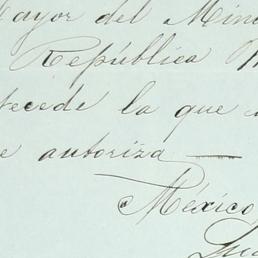 ayor del Min
República
tecede la que
e autoriza —
México